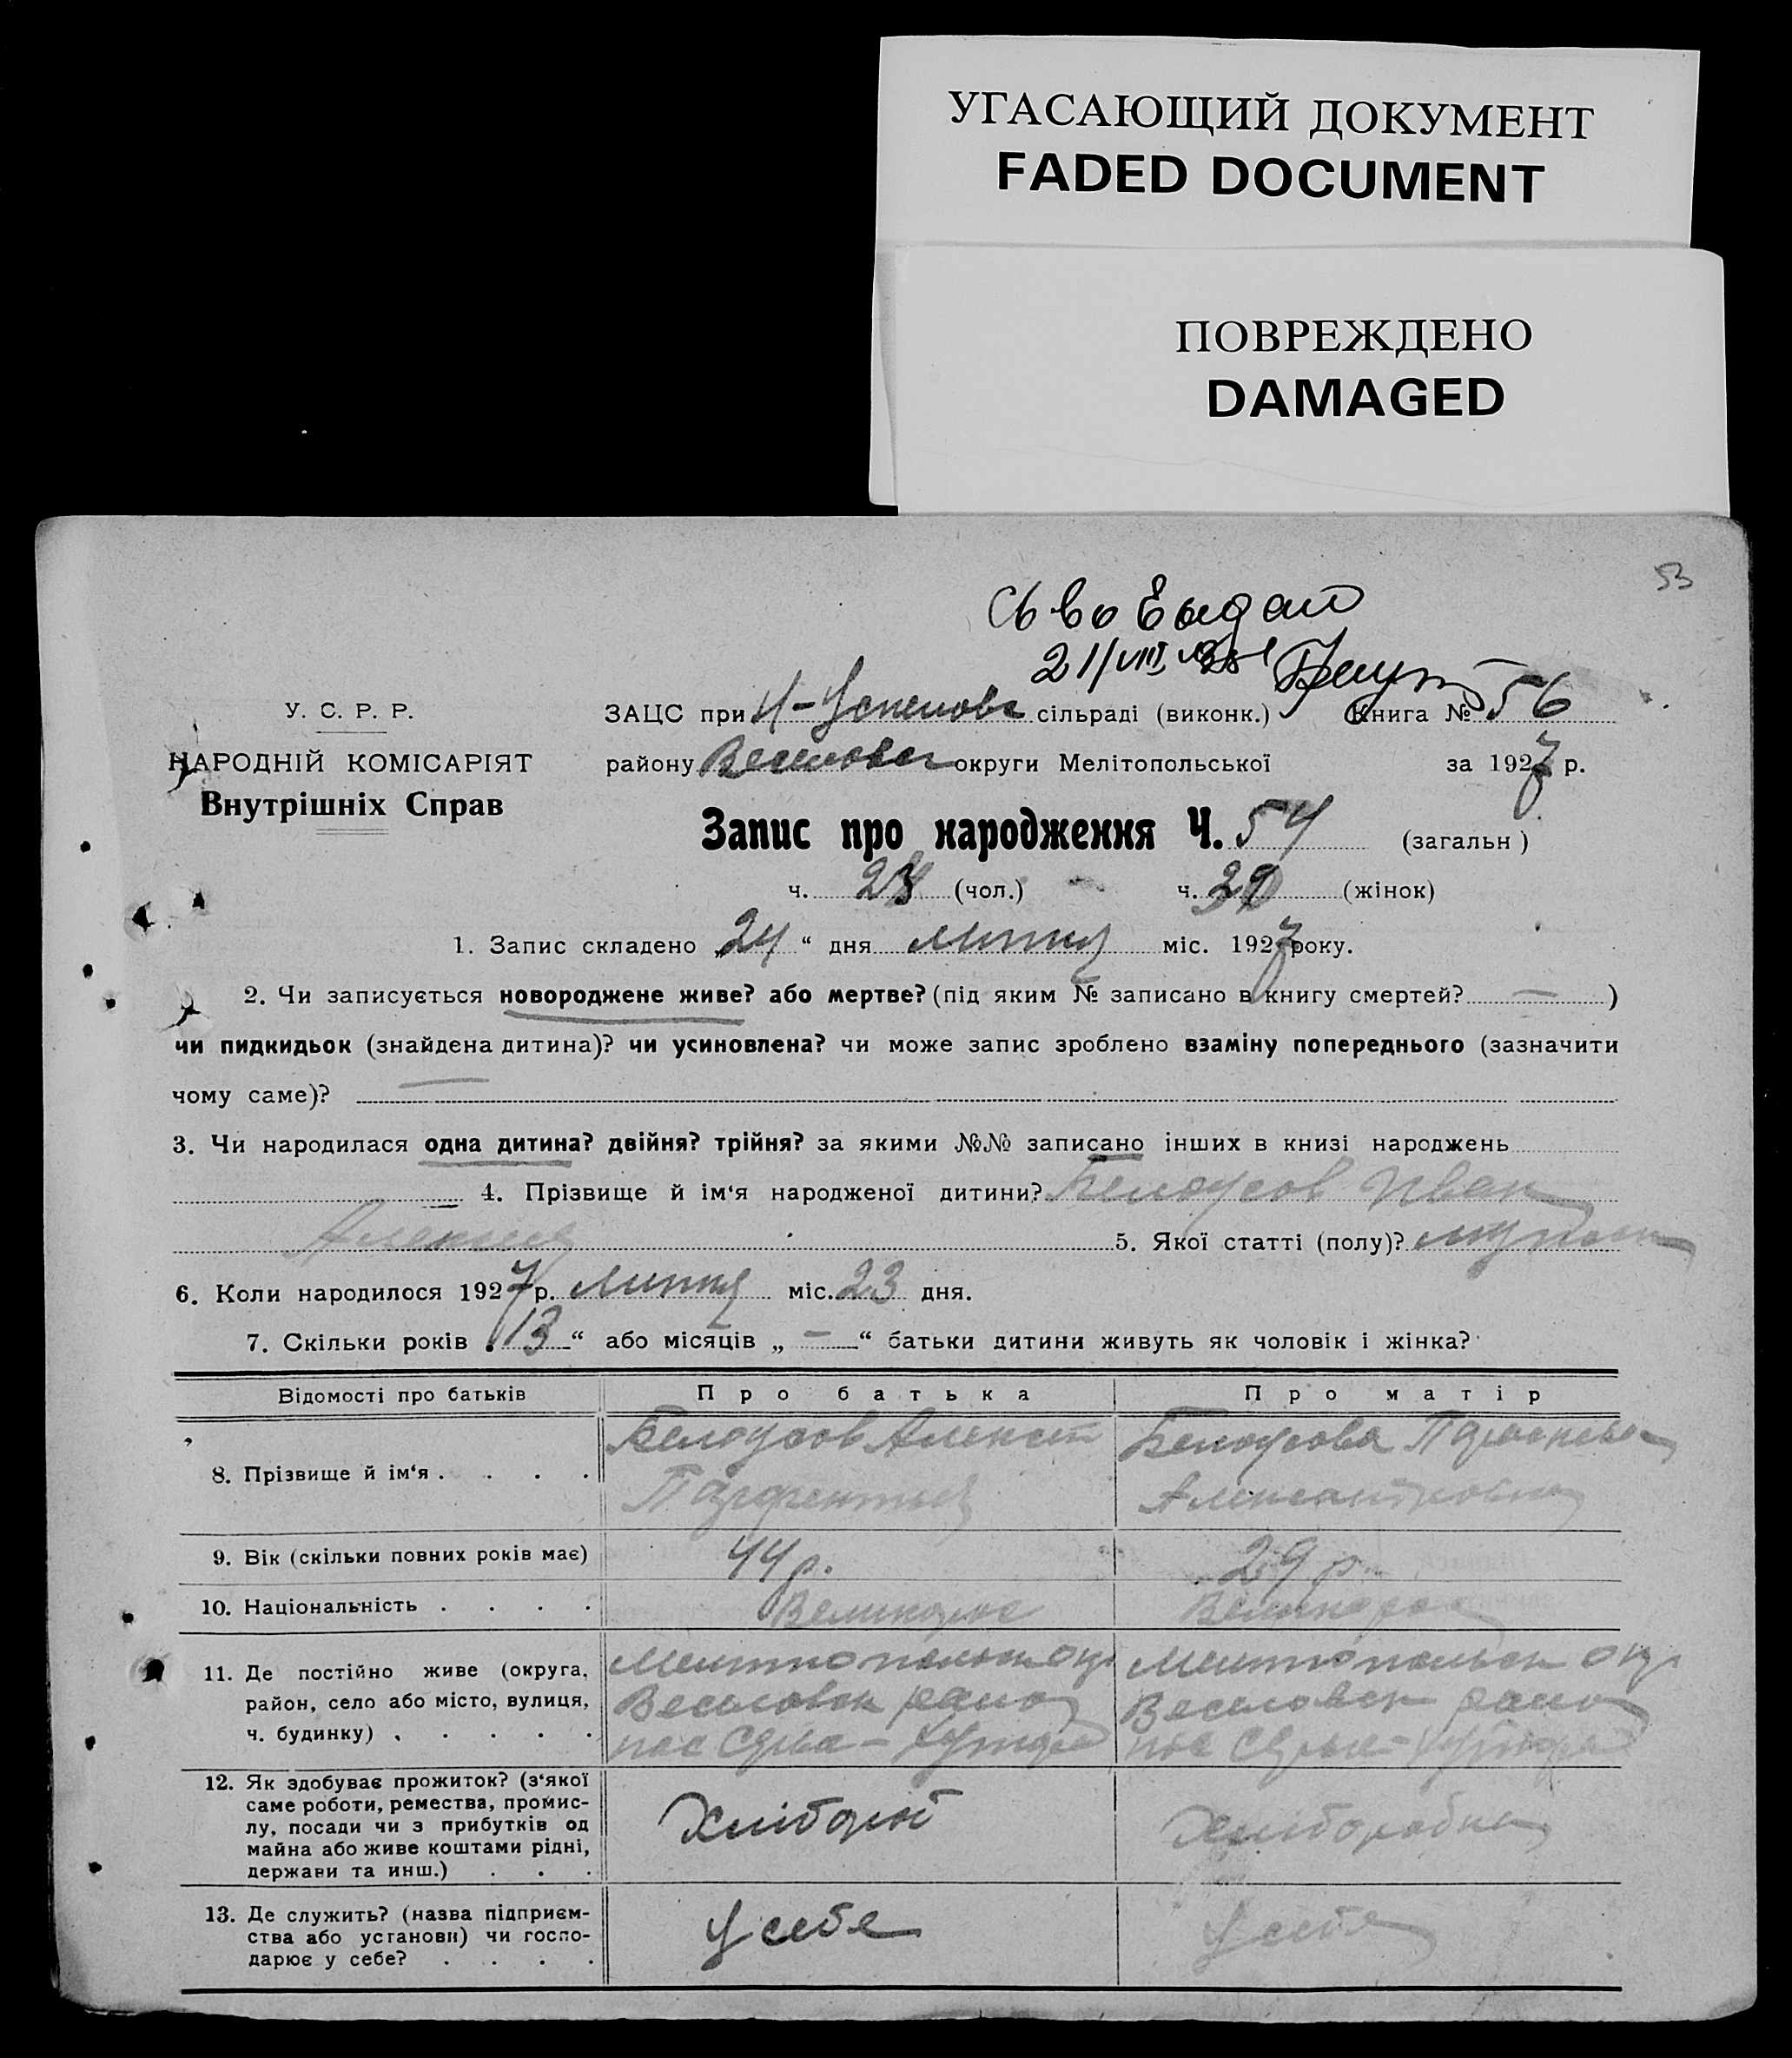 УГАСАЮЩИЙ ДОКУМЕНТ
FADED DOCUMENT
ПОВРЕЖДЕНО
DAMAGED
53
Св во выдано
21/VIII
У. С. Р. Р.
ЗАЦС при Н-Успеновс сільраді (виконк.) Книга № 56
НАРОДНІЙ КОМІСАРІЯТ
району Веселовск округи Мелітопольської за 1927 р.
Внутрішніх Справ
Запис про народження Ч. 54 (загальн)
ч. (чол.) ч. (жінок)
1. Запис складено „24“ дня липня міс. 1927 року.
2. Чи записується новороджене живе? або мертве? (під яким № записано в книгу смертей? — )
чи пидкидьок (знайдена дитина)? чи усиновлена? чи може запис зроблено взаміну попереднього (зазначити
чому саме)?
3. Чи народилася одна дитина? двійня? трійня? за якими №№ записано інших в книзі народжень
4. Прізвище й ім‘я народженої дитини? Белоусов Иван
Алексеев 5. Якої статті (полу)?
6. Коли народилося 1927 р. Липня міс. 23 дня.
7. Скільки років „13“ або місяців „ — “ батьки дитини живуть як чоловік і жінка?
Відомості про батьків Про батька Про матір
8. Прізвище й ім‘я . . . . Белоусов Алексей Белоусова Парасковья
Парфентьев Александровна
9. Вік (скільки повних років має) 44 р. 29 р.
10. Національність . . . . Великорос Великорос
11. Де постійно живе (округа, Мелитопольск окр Мелитопольск окр
район, село або місто, вулиця, Веселовск район Веселовск район
ч. будинку) . . . . . пос Хутора пос Хутора
12. Як здобуває прожиток? (з‘якої
саме роботи, ремества, промис-
лу, посади чи з прибутків од Хлібороб Хлібороб
майна або живе коштами рідні,
держави та инш.) . . .
13. Де служить? (назва підприєм-
ства або установи) чи госпо- У себе У себе
дарює у себе? . . . .